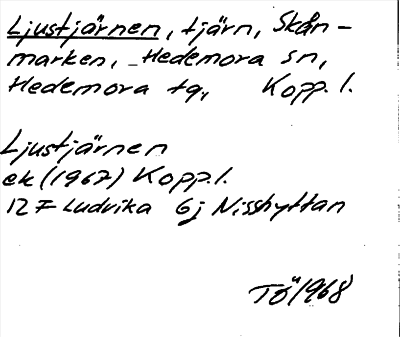 Ljustjärnen, tjärn, Skån-
marken, Hedemora sn,
Hedemora tg, Kopp. l.
Ljustjärnen
ek (1967) Kopp. l.
12 F Ludvika 6j Nisshyttan
TÖ 1968